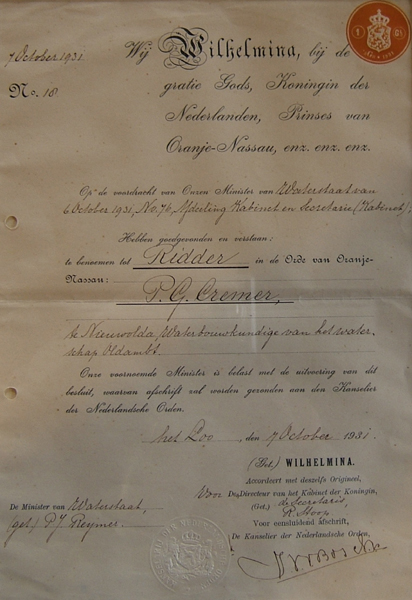 7 October 1931
No. 18
Wij Wilhelmina, bij de
gratie Gods, Koningin der
Nederlanden, Prinses van
Oranje-Nassau, enz. enz. enz.
Op de voordracht van Onzen Minister van Waterstaat van
6 October 1931, No. 76, Afdeeling Kabinet en Secretarie (Kabinet);
Hebben goedgevonden en verstaan:
te benoemen tot Ridder in de Orde van Oranje-
Nassau:
P. G. Cremer,
te Nieuwolda, Waterbouwkundige van het water-
schap Oldambt.
Onze voornoemde Minister is belast met de uitvoering van dit
besluit, waarvan afschrift zal worden gezonden aan den Kanselier
der Nederlandsche Orden.
het Loo, den 7 October 1931
(Get.) WILHELMINA.
Accordeert met deszelfs Origineel,
Voor De Directeur van het Kabinet der Koningin,
(Get.) de Secretaris
Voor eensluidend afschrift,
De Kanselier der Nederlandsche Orden,
De Minister van Waterstaat,
(get.) P. J. Reymer.